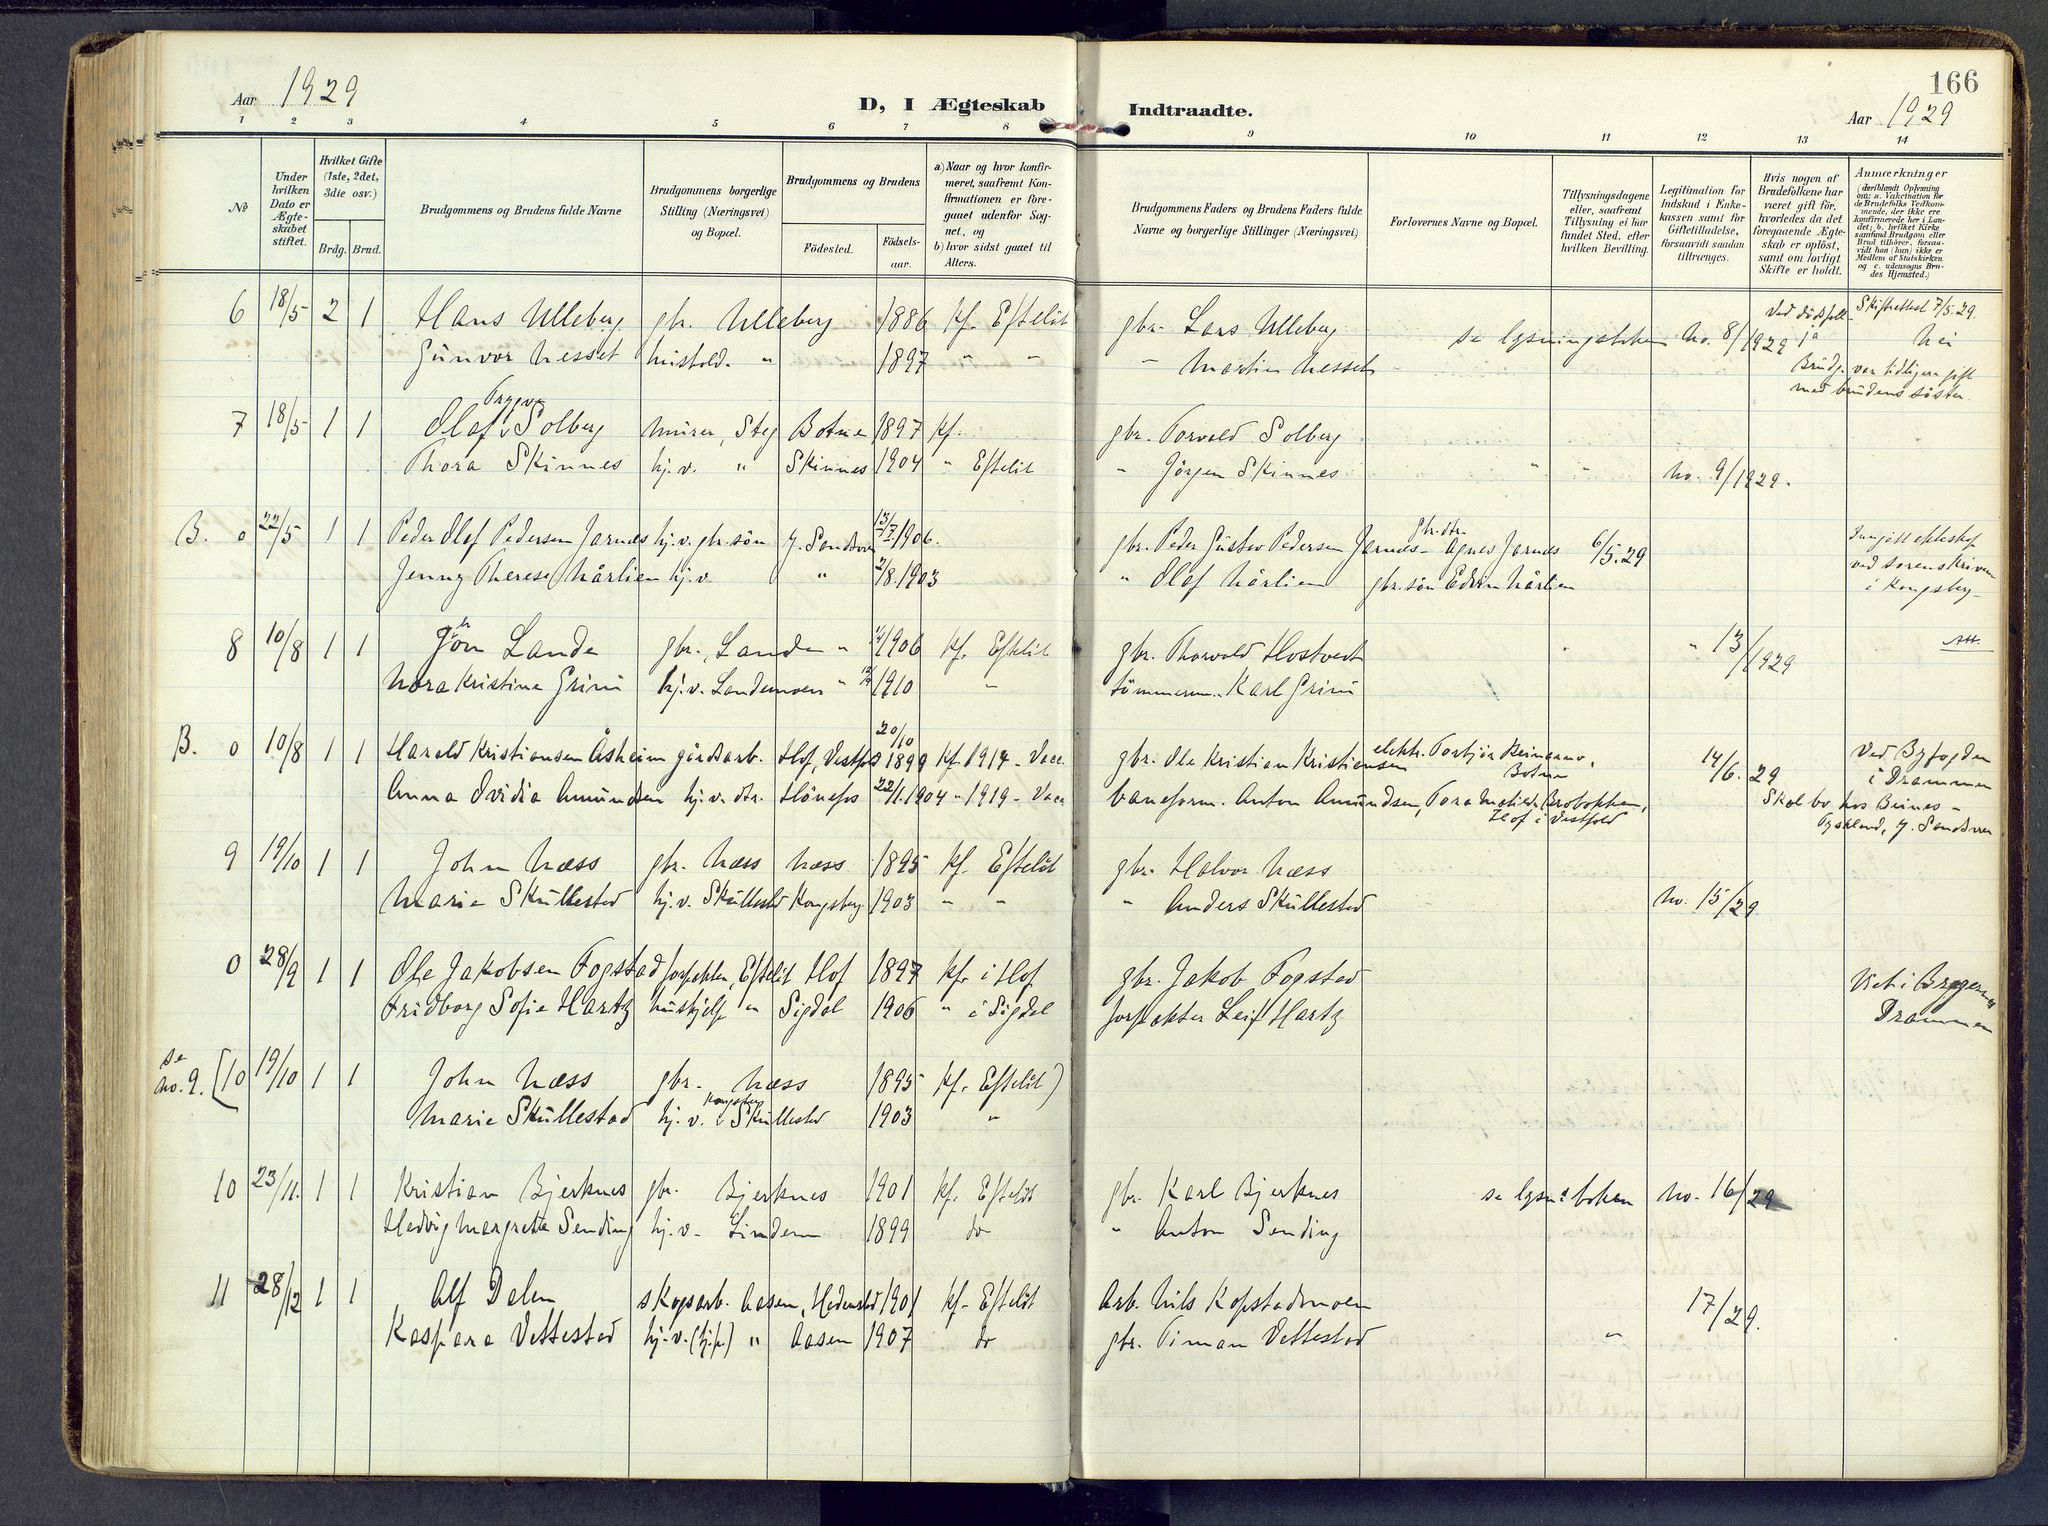 166
Aar 1929
D, I Ægteskab Indtraadte.
Aar 1929
1 2 3 4 5 6 7 8 9 10 11 12 13 14
No
Under hvilken Dato er Ægteskabet stiftet.
Hvilket Gifte (1ste, 2det, 3die osv.)
Brdg. Brud.
Brudgommens og Brudens fulde Navne
Brudgommens borgerlige Stilling (Næringsvei) og Bopæl.
Brudgommens og Brudens
Födested. Födselsaar.
a) Naar og hvor konfirmeret, saafremt Konfirmationen er foregaaet udenfor Sognet, og
b) hvor sidst gaaet til Alters.
Brudgommens Faders og Brudens Faders fulde Navne og borgerlige Stillinger (Næringsvei)
Forlovernes Navne og Bopæl.
Tillysningsdagene eller, saafremt Tillysning ei har fundet Sted, efter hvilken Bevilling.
Legitimation for Indskud i Enkekassen samt for Giftetilladelse, forsaavidt saadan tiltrænges.
Hvis nogen af Brudefolkene har været gift för, hvorledes da det foregaaende Ægteskab er oplöst, samt om lovligt Skifte er holdt.
Anmærkninger
(deriblandt Oplysning om: a. Vakcination för de Brudefolks Vedkommende, der ikke ere konfirmerede her i Landet; b. hvilket Kirkesamfund Brudgom eller Brud tilhörer, forsaavidt han (hun) ikke er Medlem af Statskirken og c. udensogns Brudes Hjemsted.)
6 18/5 2 1 Hans Ulleberg gbr. Ulleberg 1886 kf. Eftelöt gbr. Lars Ulleberg se lysningsboken No. 8/1929 Ved dödsfall ja Skifteattest 7/5-29. Nei
Gunvor Nesset husbold. " 1897 " " " Martin Nesset Brudg. var tidligere gift
med brudens söster.
7 18/5 1 1 Olaf Trygve Solberg murer, Steg Botne 1897 kf. gbr. Torvald Solberg
Thora Skinnes hj.v. " Skinnes 1904 " Eftelöt " Jörgen Skinnes " " No. 9/1929.
B. 0 22/5 1 1 Peder Olaf Pedersen Jarnes hj.v. gbr. sön Y. Sandsver 13/7 1906. gbr. Peder Gustav Pedersen Jarnes gbr.dtr. Agnes Jarnes 6/5.29 Inngått ekteskap
Jenny Therese Nårlien hj.v. " 2/8.1903 " Olaf Nårlien gbr.sön Edvin Nårlien ved sorenskriveren
i Kongsberg
8 10/8 1 1 Jörn Lande gbr. Lande " 1906 kf. Eftelöt gbr. Thorvald Hostvedt " 13/1929 Att.
Nora Kristine Grini hj.v. Landemoen " 1910 " tömmerm. Karl Grini
B. 0 10/8 1 1 Harald Kristiansen Åsheim gårdsarb. Hof, Vestfold 20/10 1899 kf. 1914 - Vacc. gbr. Ole Kristian Kristiansen elektr. Torbjör 14/6.29 Ved Byfogden
i Drammen
Anna Ovidia Amundsen hj.v. dtr. Hönefos 22/11.1904 " 1919 - Vacc baneform. Anton Amundsen, Tora Matilde Brobakken, Hof i Vestfold Skal bo hos
Y. Sandsver
9 19/10 1 1 John Næss gbr. Næss Næss 1895 kf. Eftelöt gbr. Halvor Næss
Marie Skullestad hj.v. Skullestad Kongsberg 1903 " " " Anders Skullestad No. 15/29
0 28/9 1 1 Ole Jakobsen Fogstad forpakter, Eftelöt Hof 1897 kf. i Hof gbr. Jakob Fogstad Viet i Bragernes
Fridborg Sofie Hartz hushjelp " Sigdal 1906 " i Sigdal forpakter Leif Hartz Drammen
se no. 9. [10 19/10 1 1 John Næss gbr. Næss 1895 kf. Eftelöt)
Marie Skullestad hj.v. Kongsberg Skullestad 1903 "
10 23/11. 1 1 Kristian Bjerknes gbr. Bjerknes 1901 kf. Eftelöt gbr. Karl Bjerknes se lysn. boken No. 16/29
Hedvig Margrethe Sending hj.v. Linden 1899 do " Anton Sending
11 28/12 1 1 Alf Dalen skogsarb. Aasen, Hedenstad 1901 kf. Eftelöt Arb. Nils Kopstadmoen 17/29.
Kaspara Vettestad hj.v. (hj.p) " Aasen 1907 do gbr. Timan Vettestad "